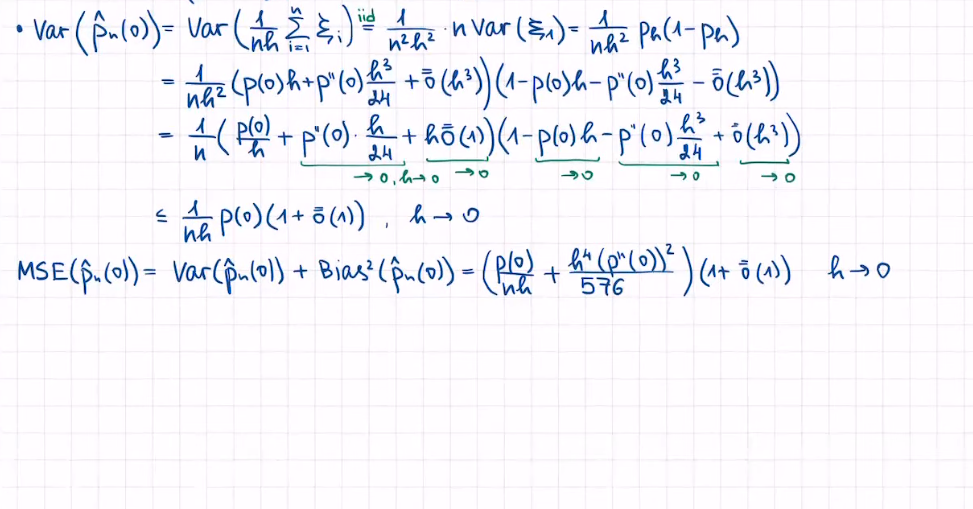 • Var(p̂ₙ(0)) = Var(1/(nh) Σᵢ₌₁ⁿ ξᵢ) =^{iid} 1/(n²h²) · n Var(ξ₁) = 1/(nh²) pₕ(1-pₕ)
= 1/(nh²) (p(0)h + p''(0) h³/24 + ō̄(h³))(1 - p(0)h - p''(0) h³/24 - ō̄(h³))
= 1/n (p(0)/h + p''(0) · h/24 + h ō̄(1))(1 - p(0)h - p''(0) h³/24 + ō̄(h³))
→ 0, h→0 → 0 → 0 → 0 → 0
≤ 1/(nh) p(0)(1 + ō̄(1)), h → 0
MSE(p̂ₙ(0)) = Var(p̂ₙ(0)) + Bias²(p̂ₙ(0)) = (p(0)/(nh) + h⁴(p''(0))²/576)(1 + ō̄(1)) h → 0